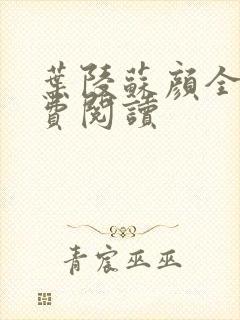 葉陵蘇顏全
費閱讀
青宸巫巫